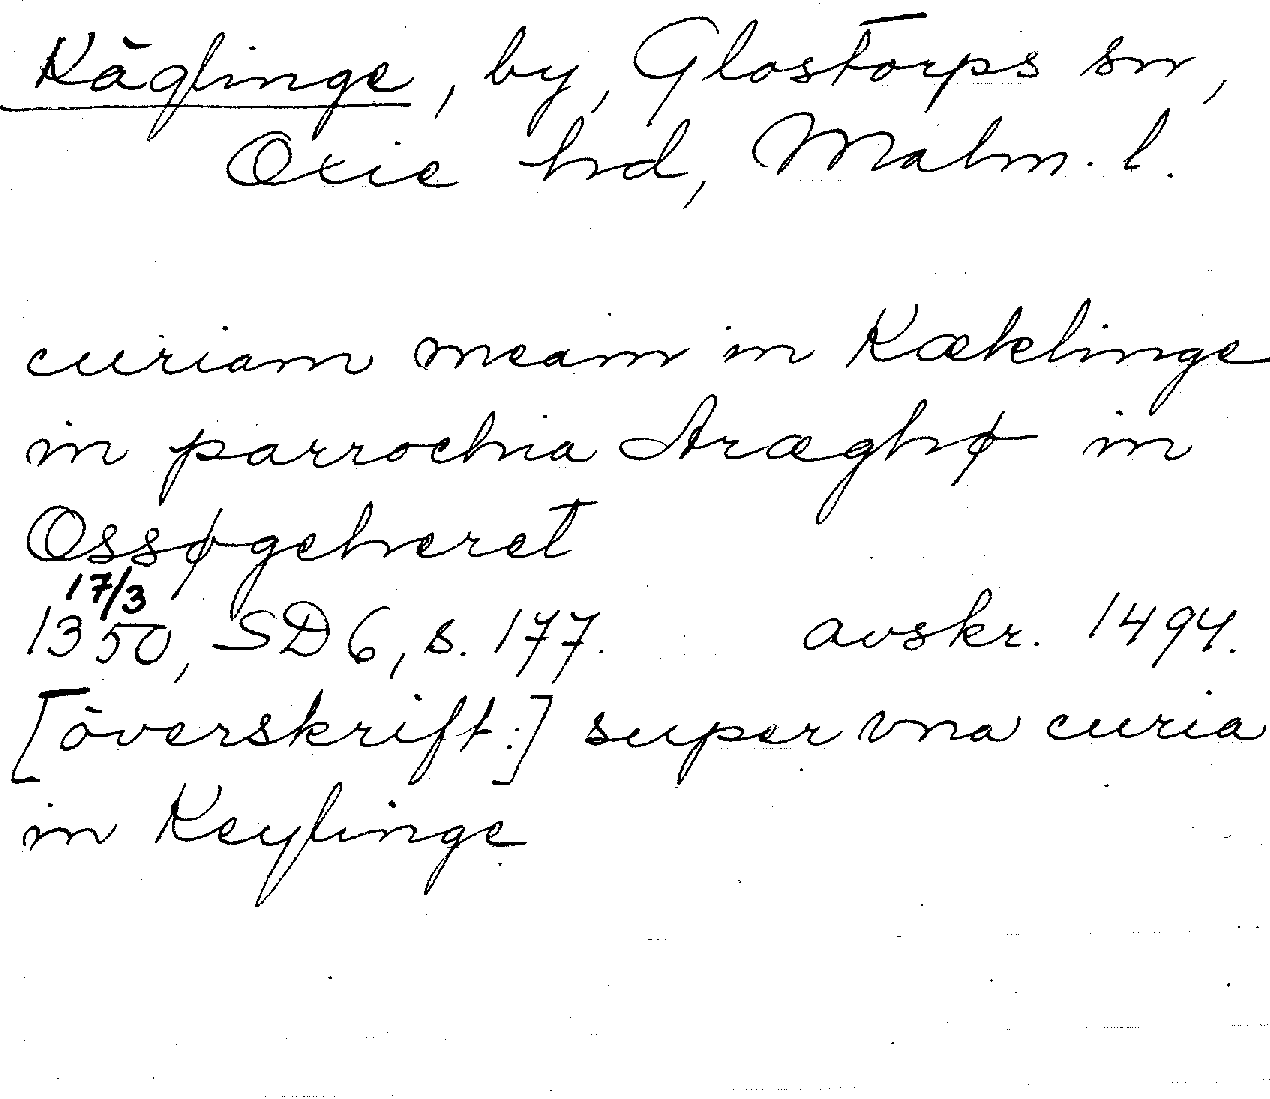 Käglinge, by, Glostorps sn,
Oxie hd, Malm. l.
curiam meam in Kæklinge
in parrochia Aræghø in
Ossøgeheret
17/3
1350, SD 6, s. 177. avskr. 1494.
[överskrift:] super vna curia
in Keylinge